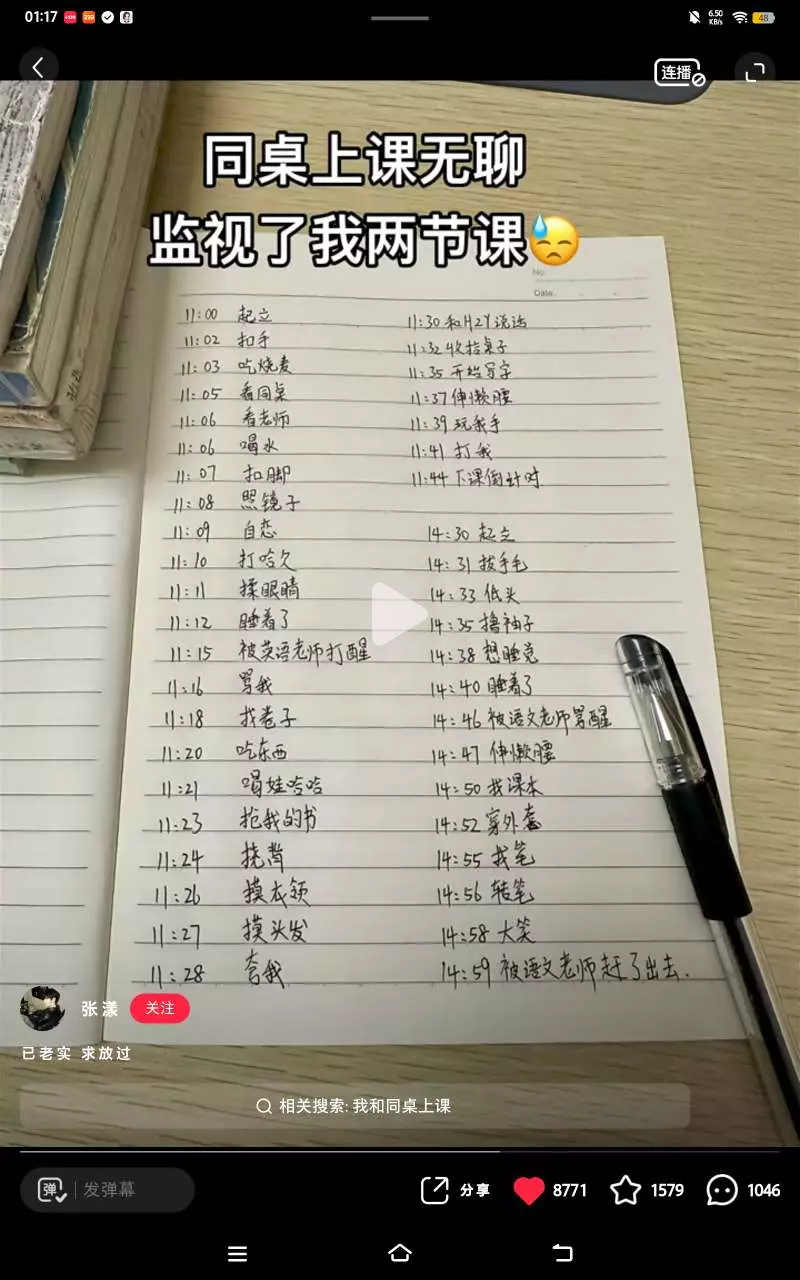 01:17
6.50
KB/s
48
连播
同桌上课无聊
监视了我两节课
No.
Date.
11:00 起立
11:02 扣手
11:03 吃烧麦
11:05 看同桌
11:06 看老师
11:06 喝水
11:07 扣脚
11:08 照镜子
11:09 自恋
11:10 打哈欠
11:11 揉眼睛
11:12 睡着了
11:15 被英语老师打醒
11:16 骂我
11:18 找卷子
11:20 吃东西
11:21 喝娃哈哈
11:23 抢我的书
11:24 挠背
11:26 摸衣领
11:27 摸头发
11:28 夸我
11:30 和HZY说话
11:32 收拾桌子
11:35 开始写字
11:37 伸懒腰
11:39 玩我手
11:41 打我
11:44 下课倒计时
14:30 起立
14:31 拔手毛
14:33 低头
14:35 撸袖子
14:38 想睡觉
14:40 睡着了
14:46 被语文老师骂醒
14:47 伸懒腰
14:50 找课本
14:52 穿外套
14:55 找笔
14:56 转笔
14:58 大笑
14:59 被语文老师赶了出去.
张漾
关注
已老实 求放过
相关搜索: 我和同桌上课
弹
发弹幕
分享
8771
1579
1046